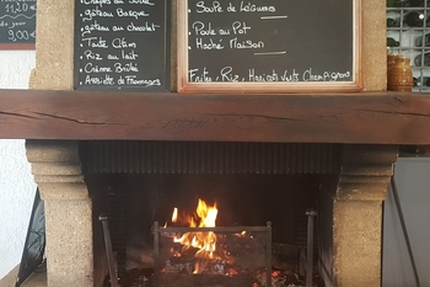 11,20
de jour
9,00
. Crêpes au Sucre
. gâteau Basque
. gâteau au chocolat
. Tarte Atin
. Riz au lait
. Crème Brûlé
. Assiette de Fromages
. Soupe de Légumes
. Poule au Pot
. Haché Maison
Frites, Riz, Haricots Verts Champignons